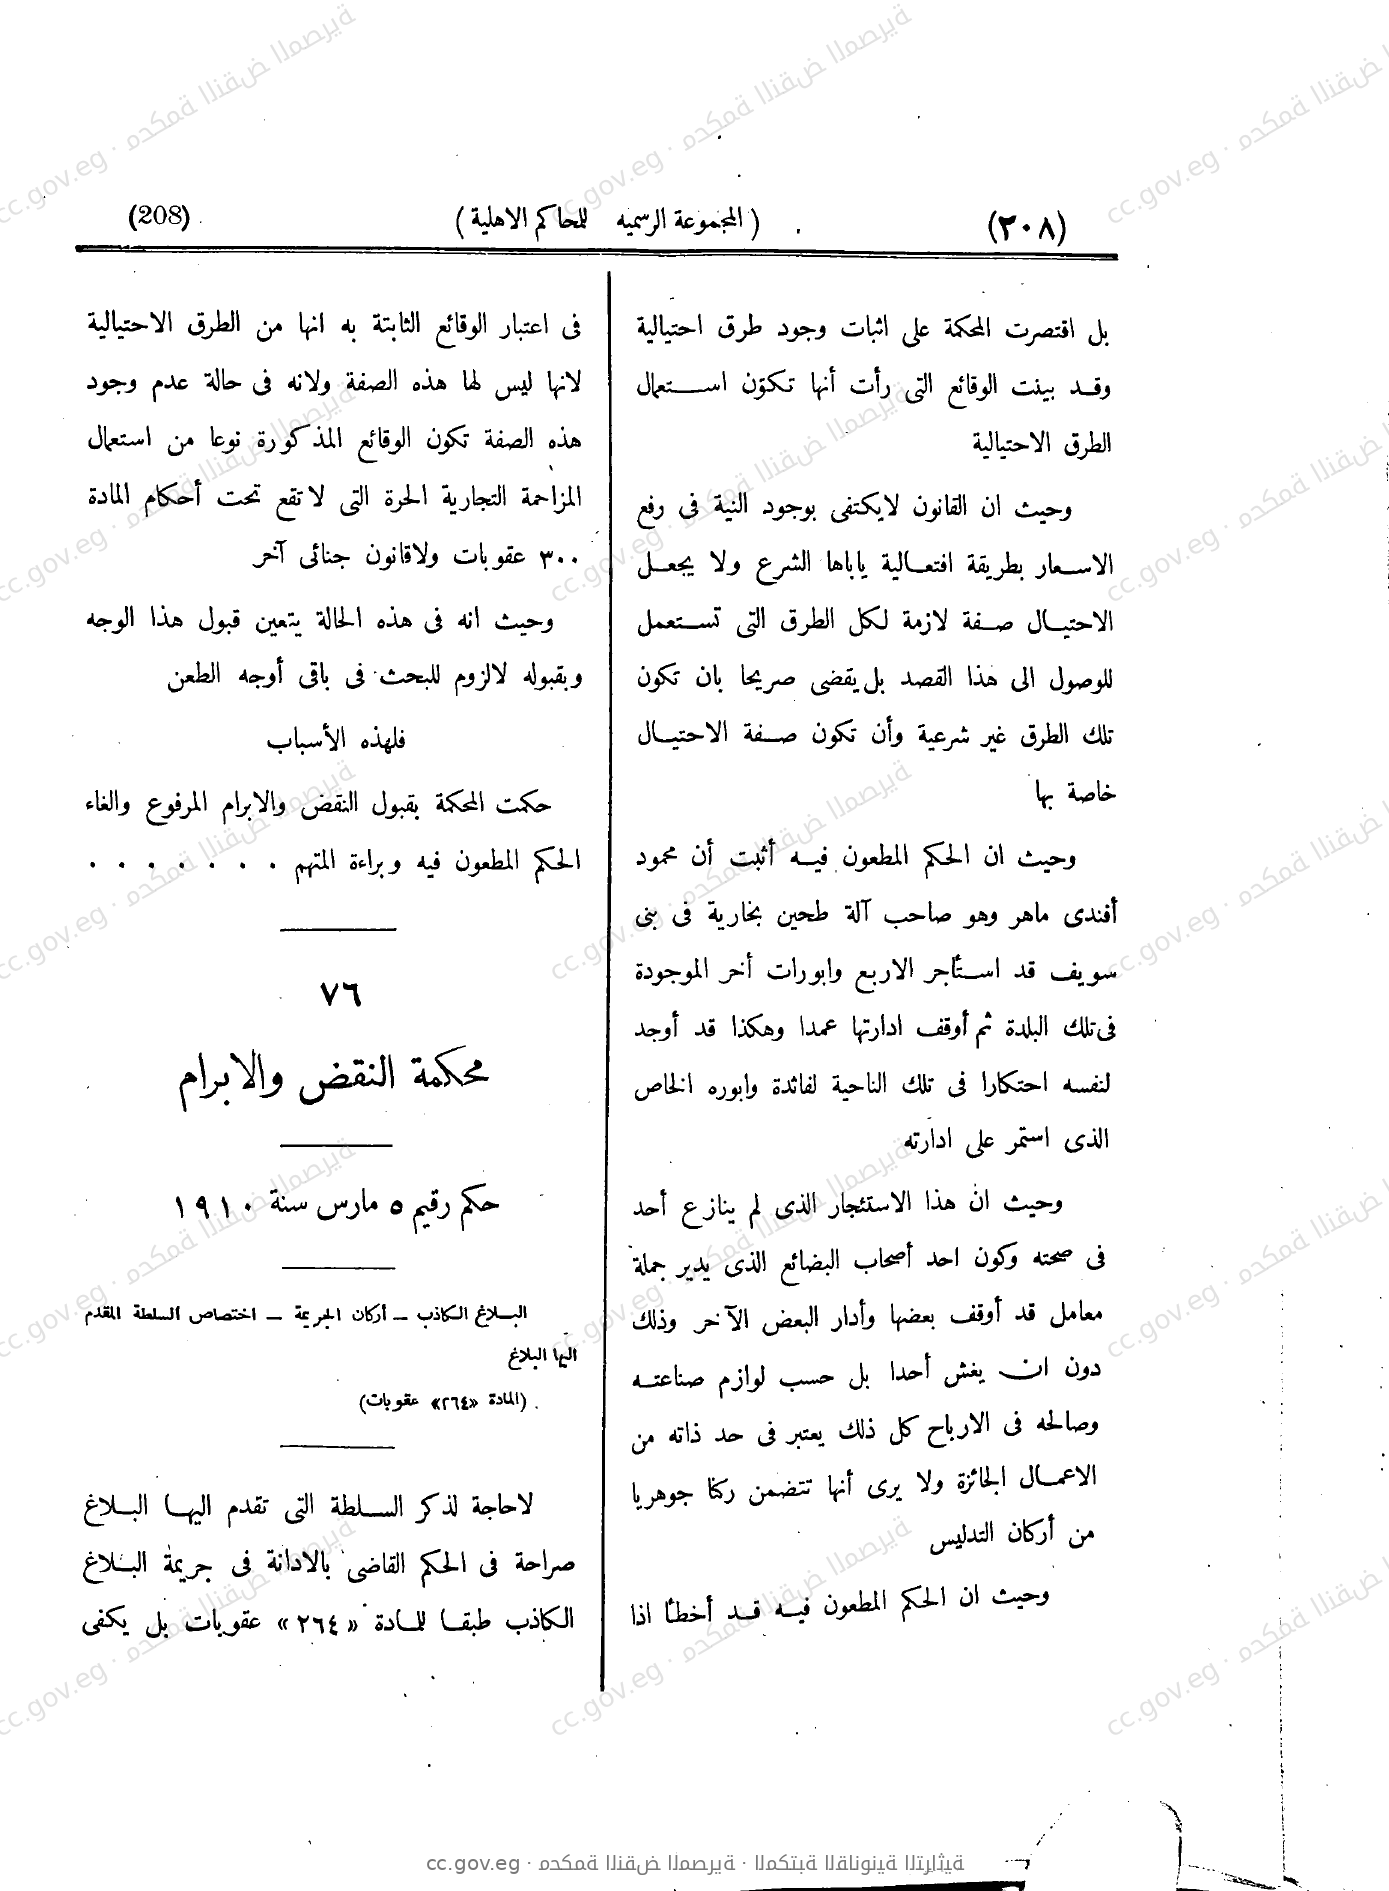 (٢٠٨)
(المجموعة الرسميه للحاكم الاهلية)
(208)
بل اقتصرت المحكمة على اثبات وجود طرق احتيالية
وقد بينت الوقائع التى رأت أنها تكوّن استعمال
الطرق الاحتيالية
وحيث ان القانون لايكتفى بوجود النية فى رفع
الاسعار بطريقة افتعالية ياباها الشرع ولا يجعل
الاحتيال صفة لازمة لكل الطرق التى تستعمل
للوصول الى هذا القصد بل يقضى صريحا بان تكون
تلك الطرق غير شرعية وأن تكون صفة الاحتيال
خاصة بها
وحيث ان الحكم المطعون فيه أثبت أن محمود
أفندى ماهر وهو صاحب آلة طحين بخارية فى بنى
سويف قد استأجر الاربع وابورات أخر الموجودة
فى تلك البلدة ثم أوقف ادارتها عمدا وهكذا قد أوجد
لنفسه احتكارا فى تلك الناحية لفائدة وابوره الخاص
الذى استمر على ادارته
وحيث ان هذا الاستئجار الذى لم ينازع أحد
فى صحته وكون احد أصحاب البضائع الذى يدير جملة
معامل قد أوقف بعضها وأدار البعض الآخر وذلك
دون ان يغش أحدا بل حسب لوازم صناعته
وصالحه فى الارباح كل ذلك يعتبر فى حد ذاته من
الاعمال الجائزة ولا يرى أنها تتضمن ركنا جوهريا
من أركان التدليس
وحيث ان الحكم المطعون فيه قد أخطأ اذا
فى اعتبار الوقائع الثابتة به انها من الطرق الاحتيالية
لانها ليس لها هذه الصفة ولانه فى حالة عدم وجود
هذه الصفة تكون الوقائع المذكورة نوعا من استعمال
المزاحمة التجارية الحرة التى لاتقع تحت أحكام المادة
٣٠٠ عقوبات ولاقانون جنائى آخر
وحيث انه فى هذه الحالة يتعين قبول هذا الوجه
وبقبوله لالزوم للبحث فى باقى أوجه الطعن
فلهذه الأسباب
حكمت المحكمة بقبول النقض والابرام المرفوع والغاء
الحكم المطعون فيه وبراءة المتهم . . . . . . .
٧٦
محكمة النقض والابرام
حكم رقيم ٥ مارس سنة ١٩١٠
البلاغ الكاذب — أركان الجريمة — اختصاص السلطة المقدم
اليها البلاغ
(المادة «٢٦٤» عقوبات)
لاحاجة لذكر السلطة التى تقدم اليها البلاغ
صراحة فى الحكم القاضى بالادانة فى جريمة البلاغ
الكاذب طبقا للمادة «٢٦٤» عقوبات بل يكفى
cc.gov.eg · محكمة النقض المصرية · المكتبة القانونية التراثية